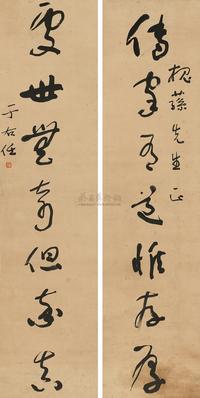 傳家有道惟存厚
槐蓀先生正
處世無奇但率真
于右任